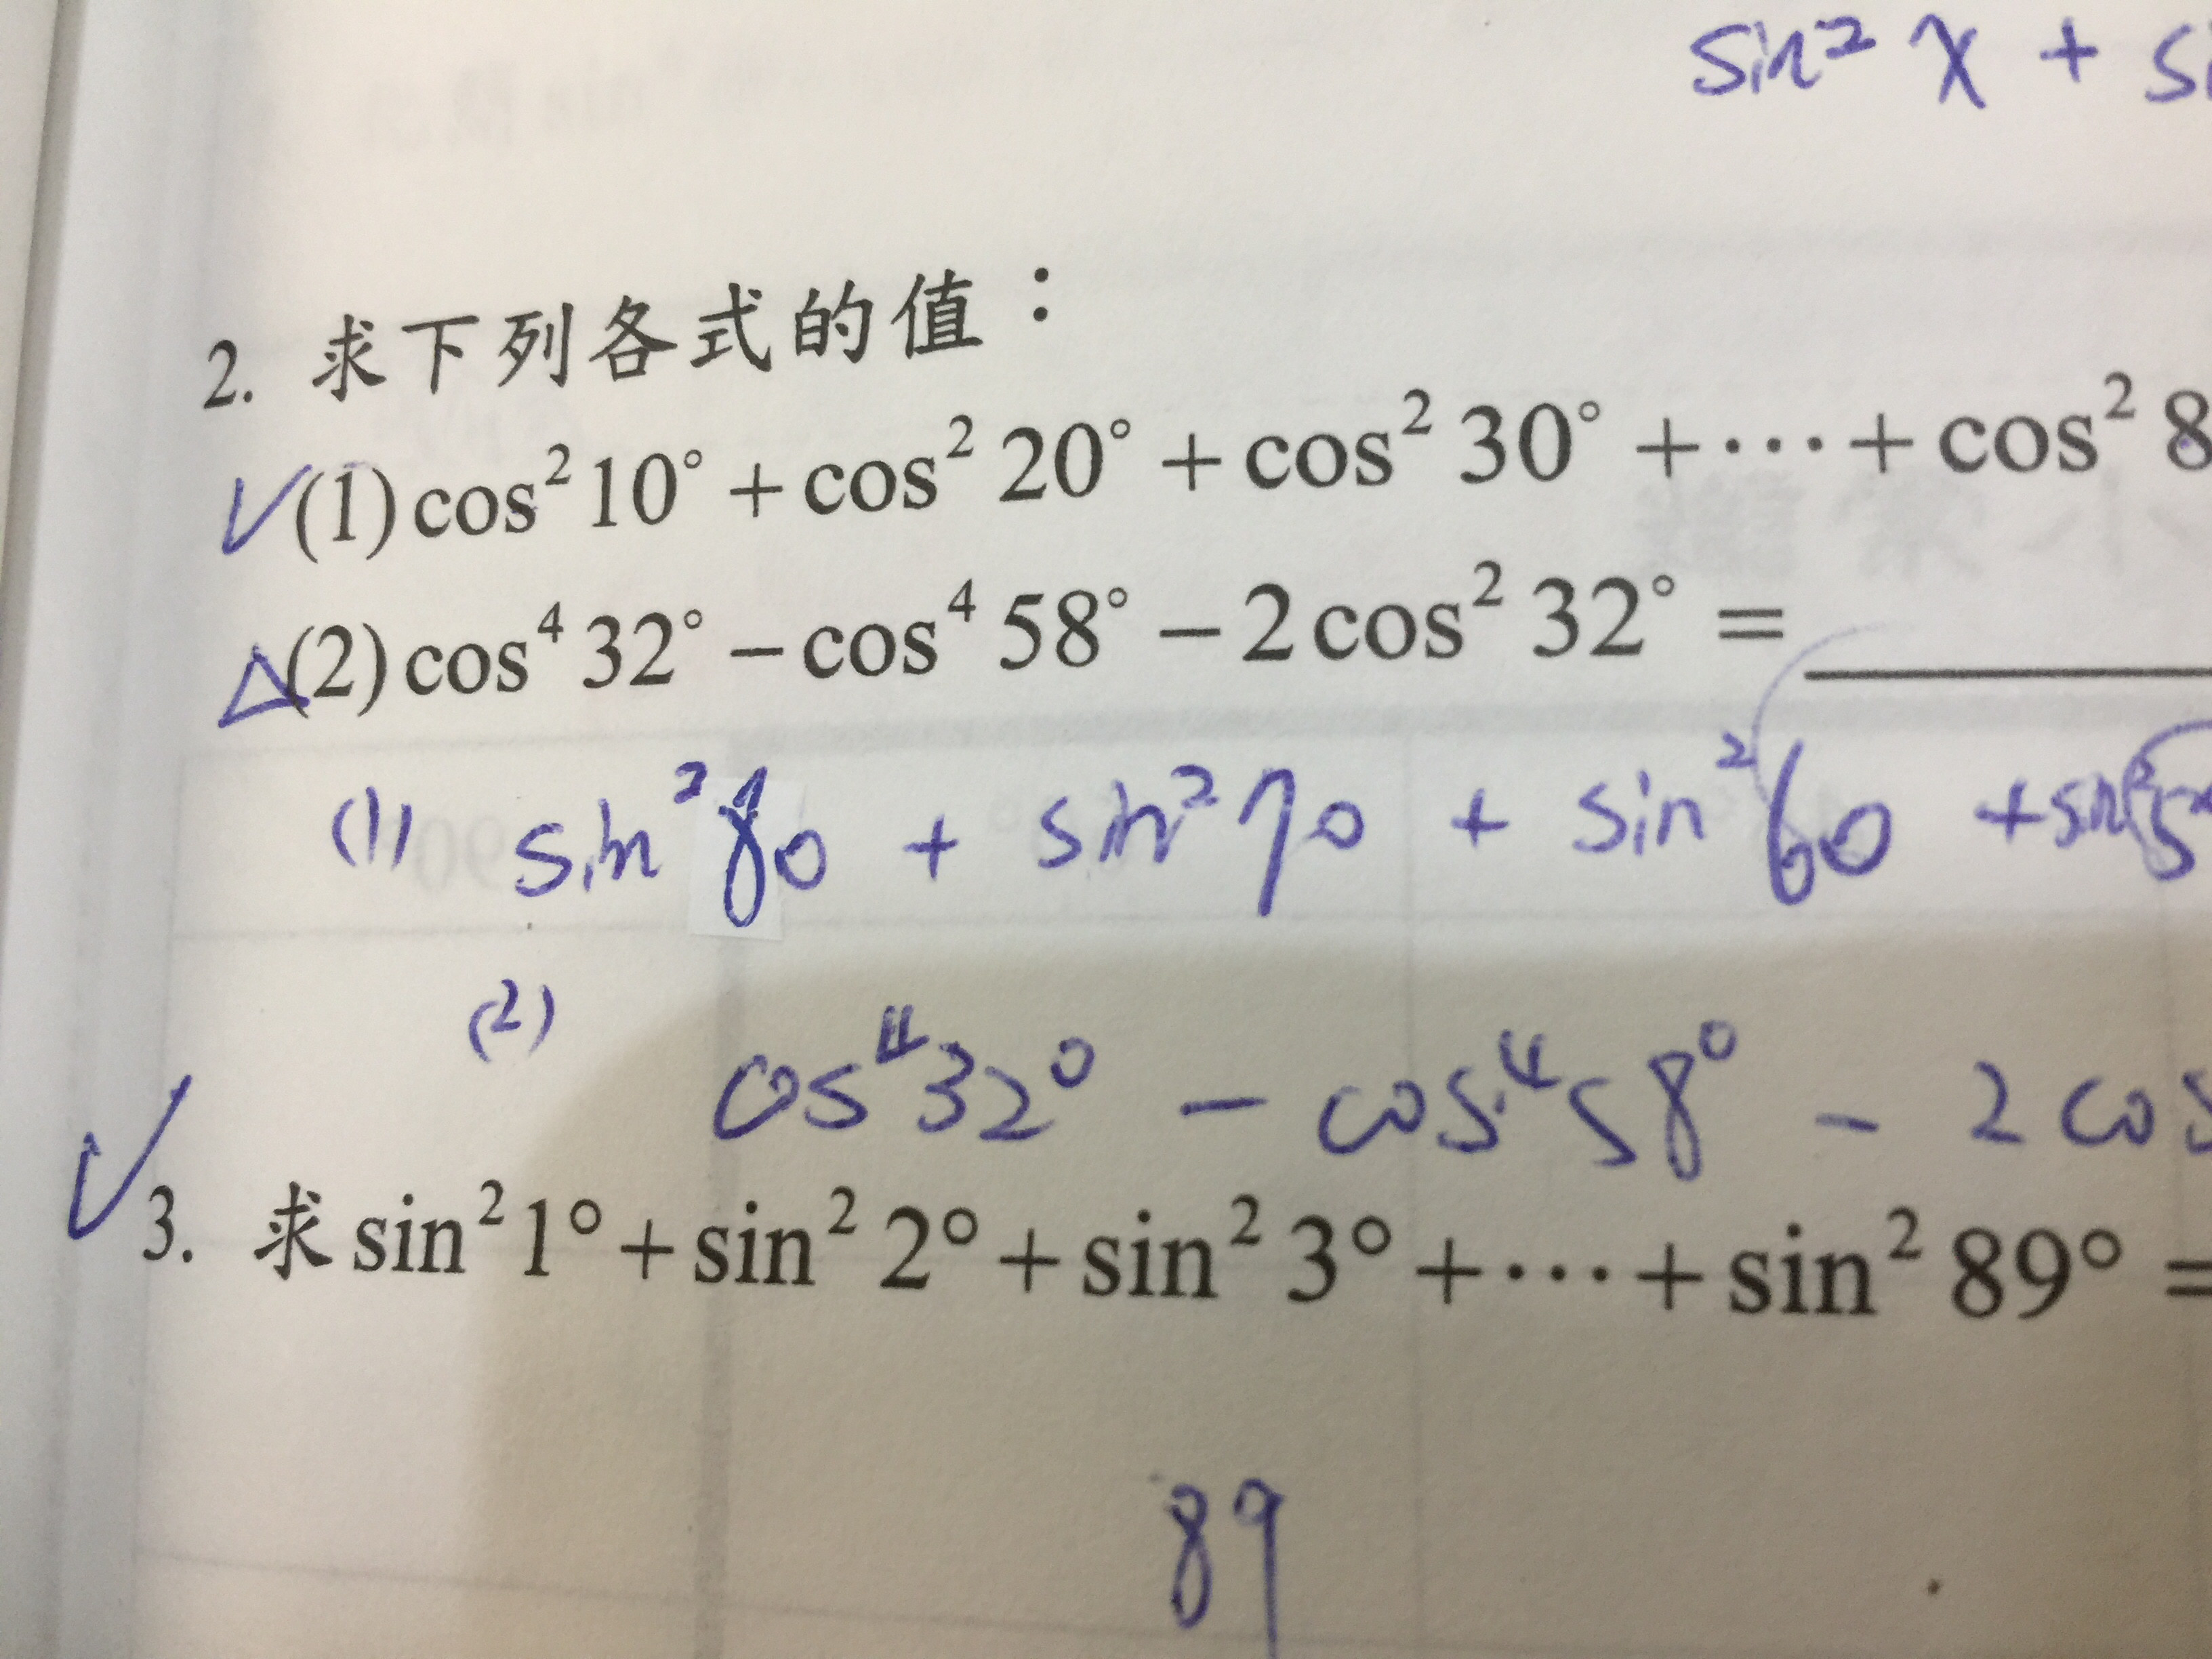 sin² x + s
2. 求下列各式的值：
(1) cos² 10° + cos² 20° + cos² 30° + ⋯ + cos² 8
(2) cos⁴ 32° − cos⁴ 58° − 2 cos² 32° =
(1) sin² 80 + sin² 70 + sin² 60 + sin² 5
(2) cos⁴ 32° − cos⁴ 58° − 2 cos
3. 求 sin² 1° + sin² 2° + sin² 3° + ⋯ + sin² 89° =
89